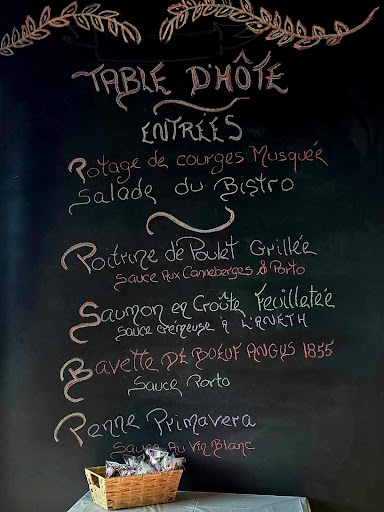 TABLE D'HÔTE
ENTRÉES
Potage de courges Musquée
Salade du Bistro
Poitrine de Poulet Grillée
Sauce Aux Canneberges & Porto
Saumon en Croûte Feuilletée
Sauce Crémeuse à L'ANETH
Bavette DE BOEUF ANGUS 1855
Sauce Porto
Penne Primavera
Sauce Au Vin Blanc